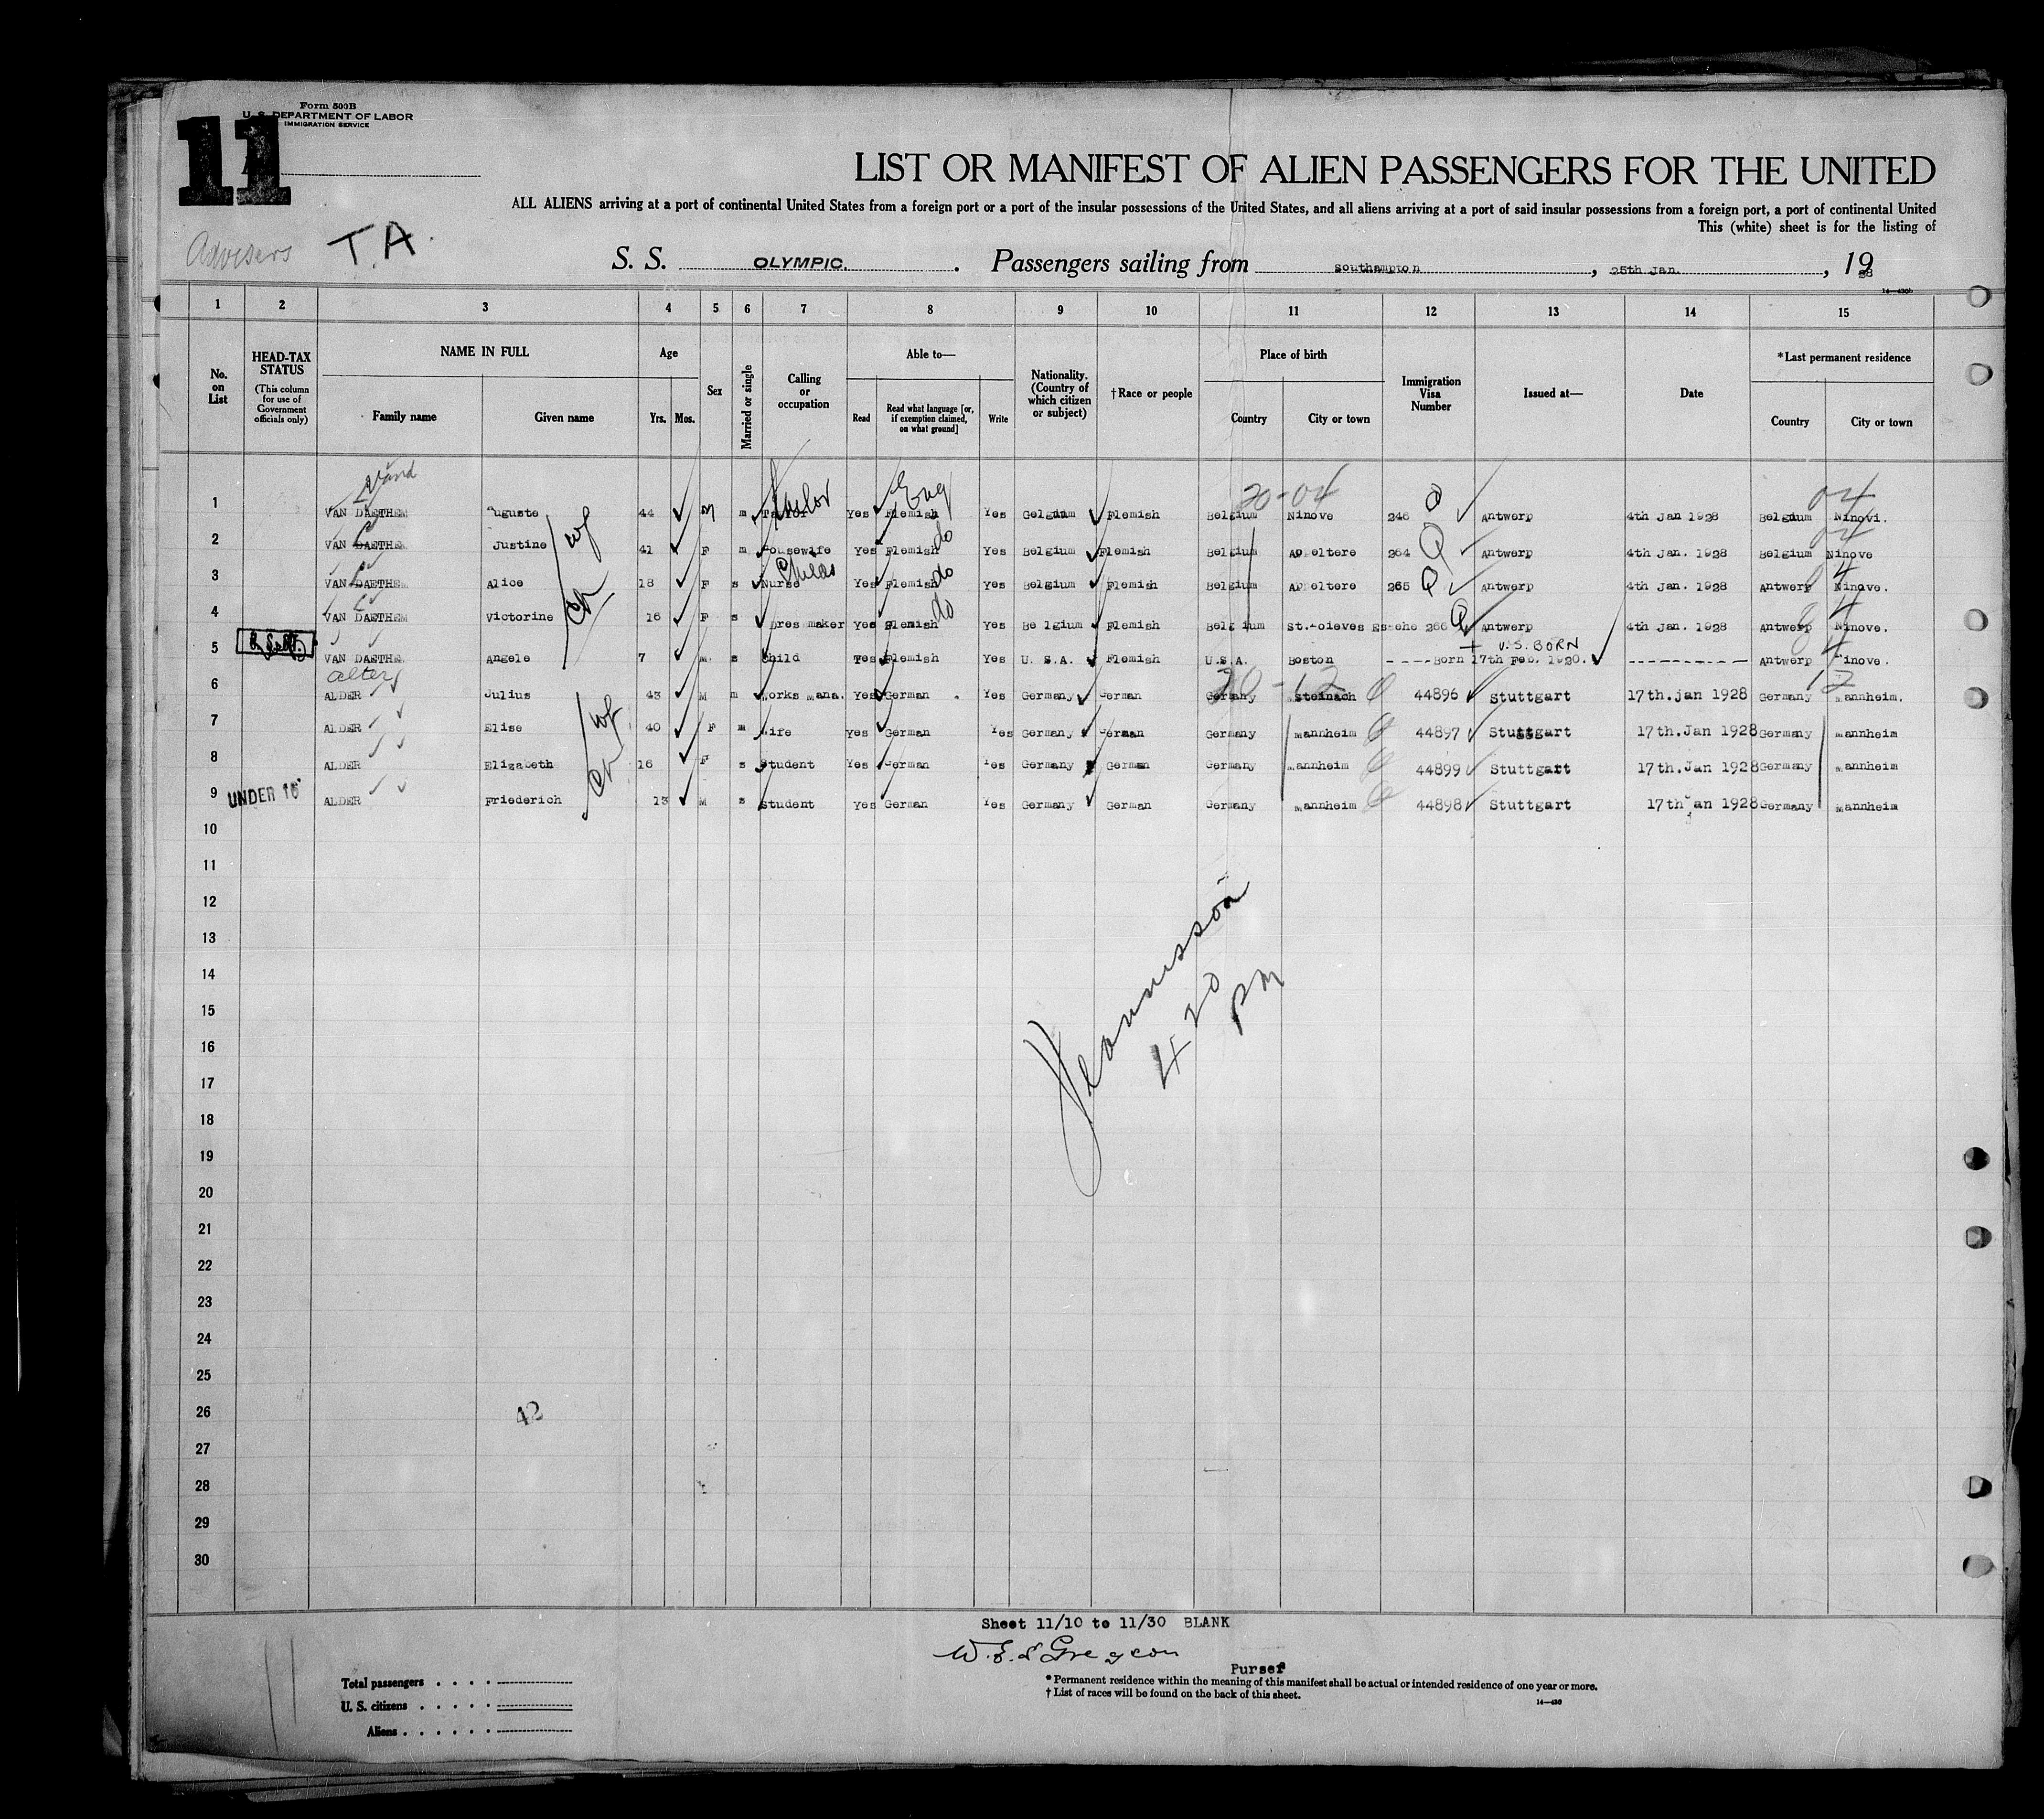 Form 500B
U. S. DEPARTMENT OF LABOR
IMMIGRATION SERVICE
11
LIST OR MANIFEST OF ALIEN PASSENGERS FOR THE UNITED
ALL ALIENS arriving at a port of continental United States from a foreign port or a port of the insular possessions of the United States, and all aliens arriving at a port of said insular possessions from a foreign port, a port of continental United
This (white) sheet is for the listing of
Advisers T.A.
S. S. OLYMPIC. Passengers sailing from Southampton, 25th Jan., 1928
14—430b
1 2 3 4 5 6 7 8 9 10 11 12 13 14 15
No. on List
HEAD-TAX STATUS (This column for use of Government officials only)
NAME IN FULL Family name Given name
Age Yrs. Mos.
Sex
Married or single
Calling or occupation
Able to— Read Read what language [or, if exemption claimed, on what ground] Write
Nationality. (Country of which citizen or subject)
†Race or people
Place of birth Country City or town
Immigration Visa Number
Issued at—
Date
*Last permanent residence Country City or town
Eng 20-04 04
1 VAN DAETHEM Auguste 44 M m Tailor Yes Flemish Yes Gelgium Flemish Belgium Ninove 246 Antwerp 4th Jan 1928 Belgium Ninovi.
2 VAN DAETHEM Justine wf 41 F m Housewife Yes Flemish do Yes Belgium Flemish Belgium Appeltere 264 Q Antwerp 4th Jan. 1928 Belgium Ninove
3 VAN DAETHEM Alice 18 F s Nurse Yes Flemish do Yes Belgium Flemish Belgium Appeltere 265 Q Antwerp 4th Jan. 1928 Antwerp Ninove.
4 VAN DAETHEM Victorine ch 16 F s Dres maker Yes Flemish do Yes Belgium Flemish Belgium 266 Q Antwerp 4th Jan. 1928 Antwerp Ninove.
+ U.S. BORN
5 VAN DAETHE. Angele 7 M s Child Yes Flemish Yes U. S.A. Flemish U.S.A. Boston ----Born 17th Feb. 1920. ---------- Antwerp Ninove.
20-12 12
6 ALDER Julius 43 M m Works mana. Yes German Yes Germany German Germany Steinach 44896 Stuttgart 17th.jan 1928 Germany Mannheim.
7 ALDER Elise wf 40 F m Wife Yes German Yes Germany German Germany Mannheim 44897 Stuttgart 17th.Jan 1928 Germany Mannheim
8 ALDER Elizabeth ch 16 F s Student Yes German Yes Germany German Germany Mannheim 44899 Stuttgart 17th.Jan 1928 Germany Mannheim
9 UNDER 16 ALDER Friederich 13 M s Student Yes German Yes Germany German Germany Mannheim 44898 Stuttgart 17th Jan 1928 Germany Mannheim
10
11
12
13
14
15
16
17
18
19
20
21
22
23
24
25
26
27
28
29
30
4 20 PM
42
Sheet 11/10 to 11/30 BLANK
Purser
Total passengers
U. S. citizens
Aliens
* Permanent residence within the meaning of this manifest shall be actual or intended residence of one year or more.
† List of races will be found on the back of this sheet.
14—430